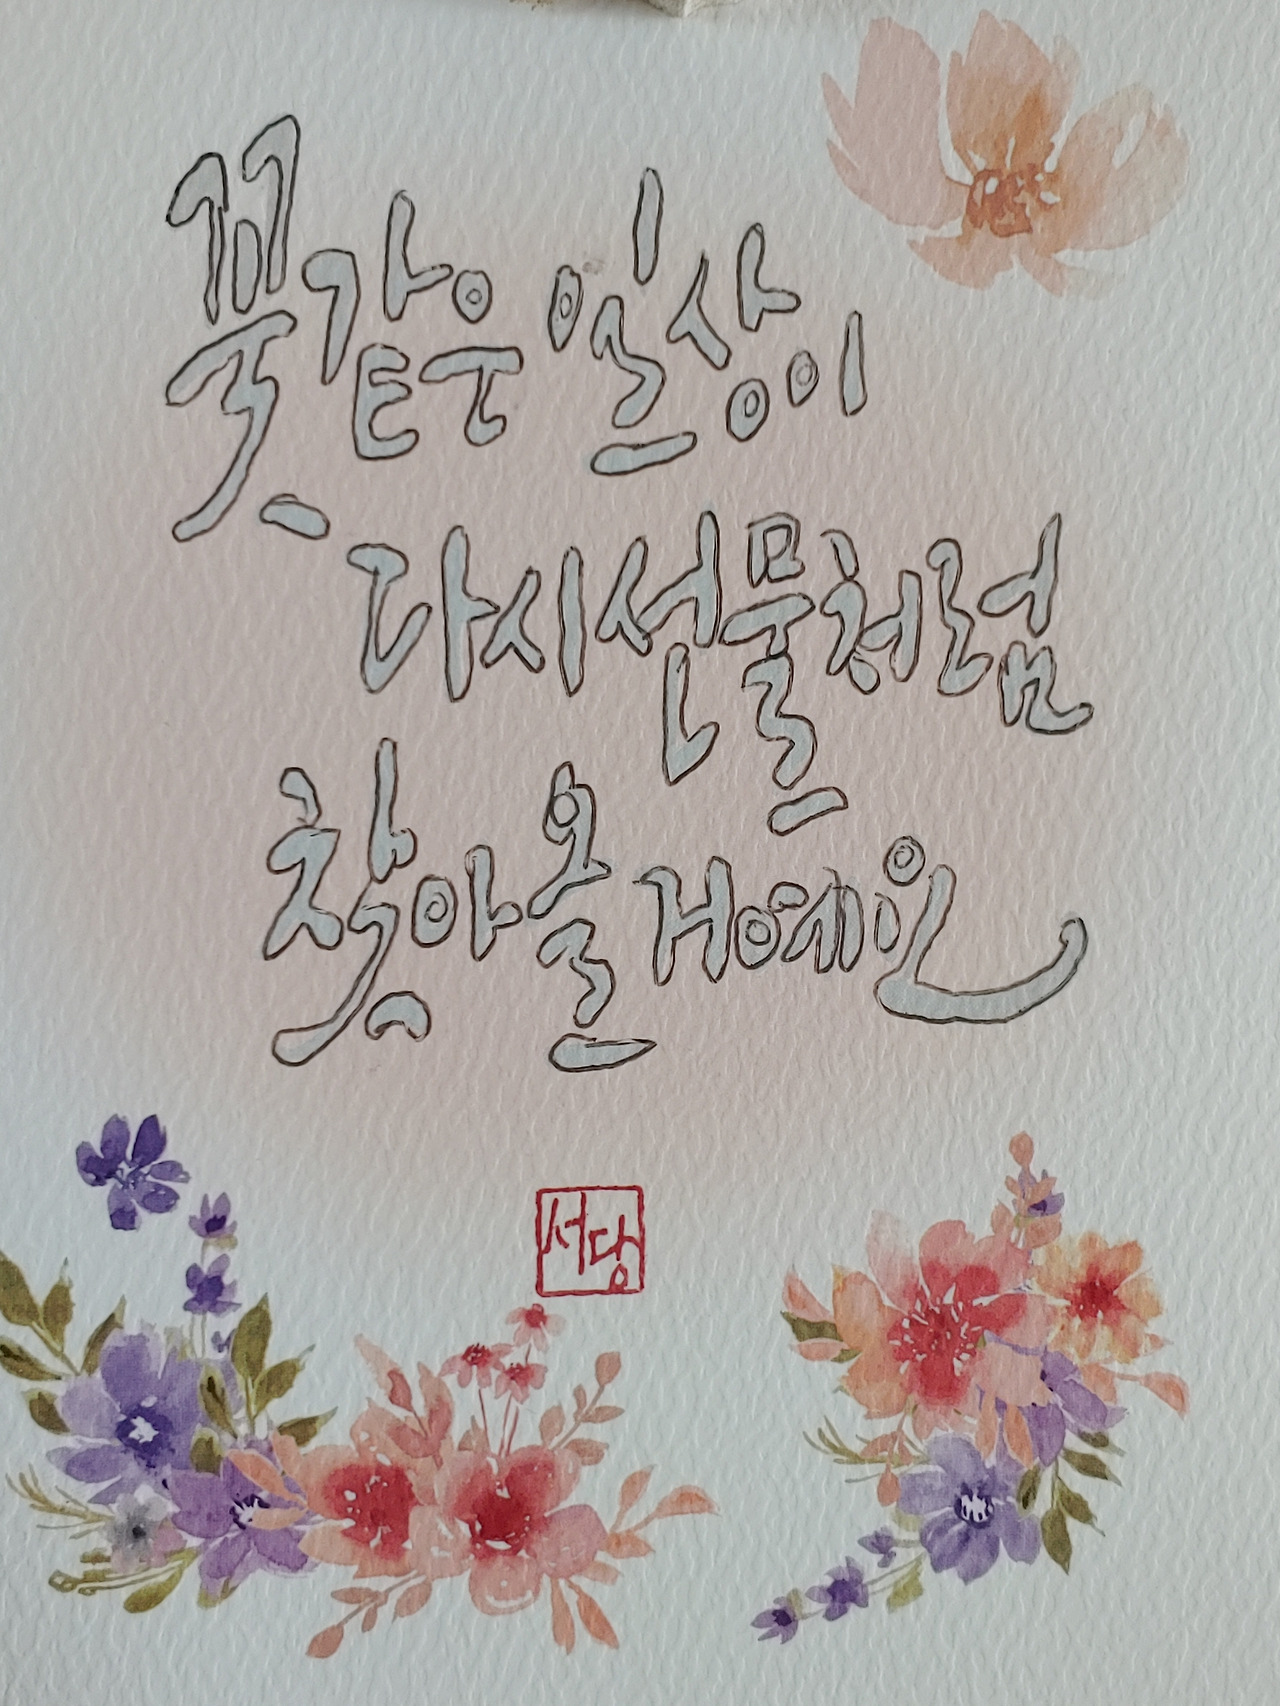 꽃같은 일상이
다시 선물처럼
찾아올 거예요
서당